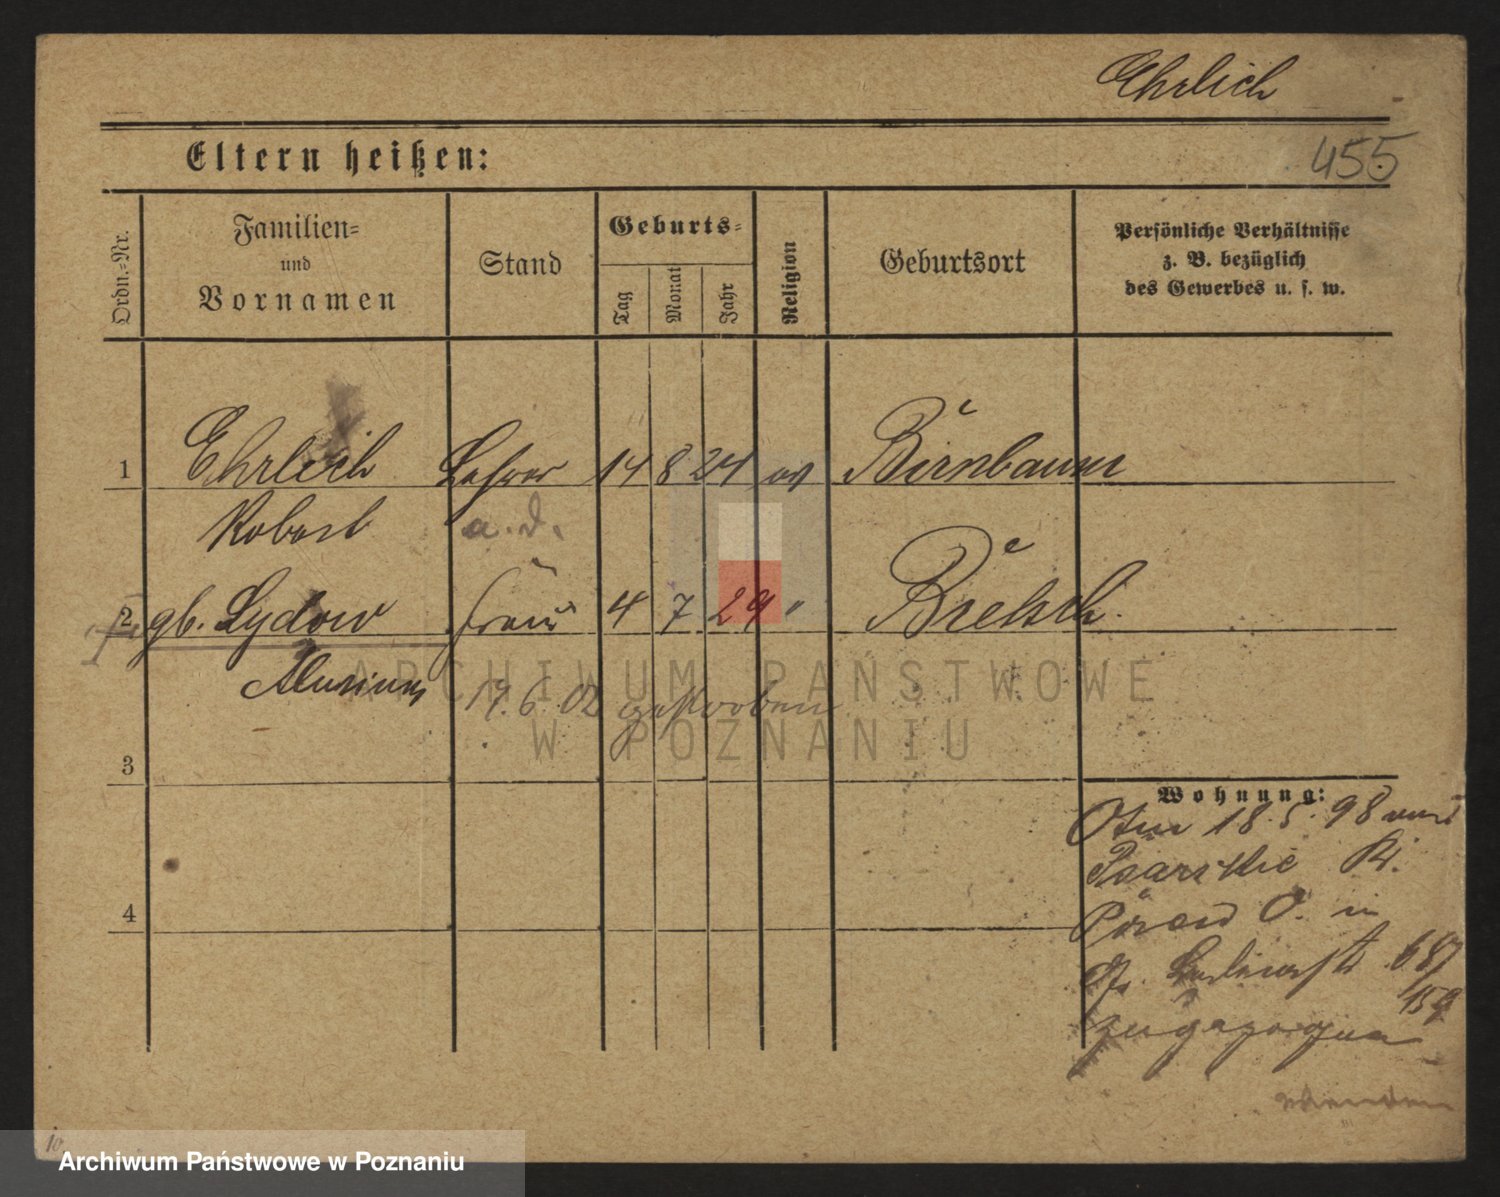 Ehrlich
455
Eltern heißen:
Ordn.-Nr.
Familien-
und
Vornamen
Stand
Geburts-
Tag
Monat
Jahr
Religion
Geburtsort
Persönliche Verhältnisse
z. B. bezüglich
des Gewerbes u. s. w.
1 Ehrlich Lehrer 14 8 24 ev Birnbaum
Robert a. D.
2 gb. Lydow Frau 4 7 29 "
19. 6. 02 gestorben
ARCHIWUM PAŃSTWOWE
W POZNANIU
3
Wohnung:
18. 5. 98 von
Psarskie Kr.
4
in
687
159
zugezogen
wenden
Archiwum Państwowe w Poznaniu